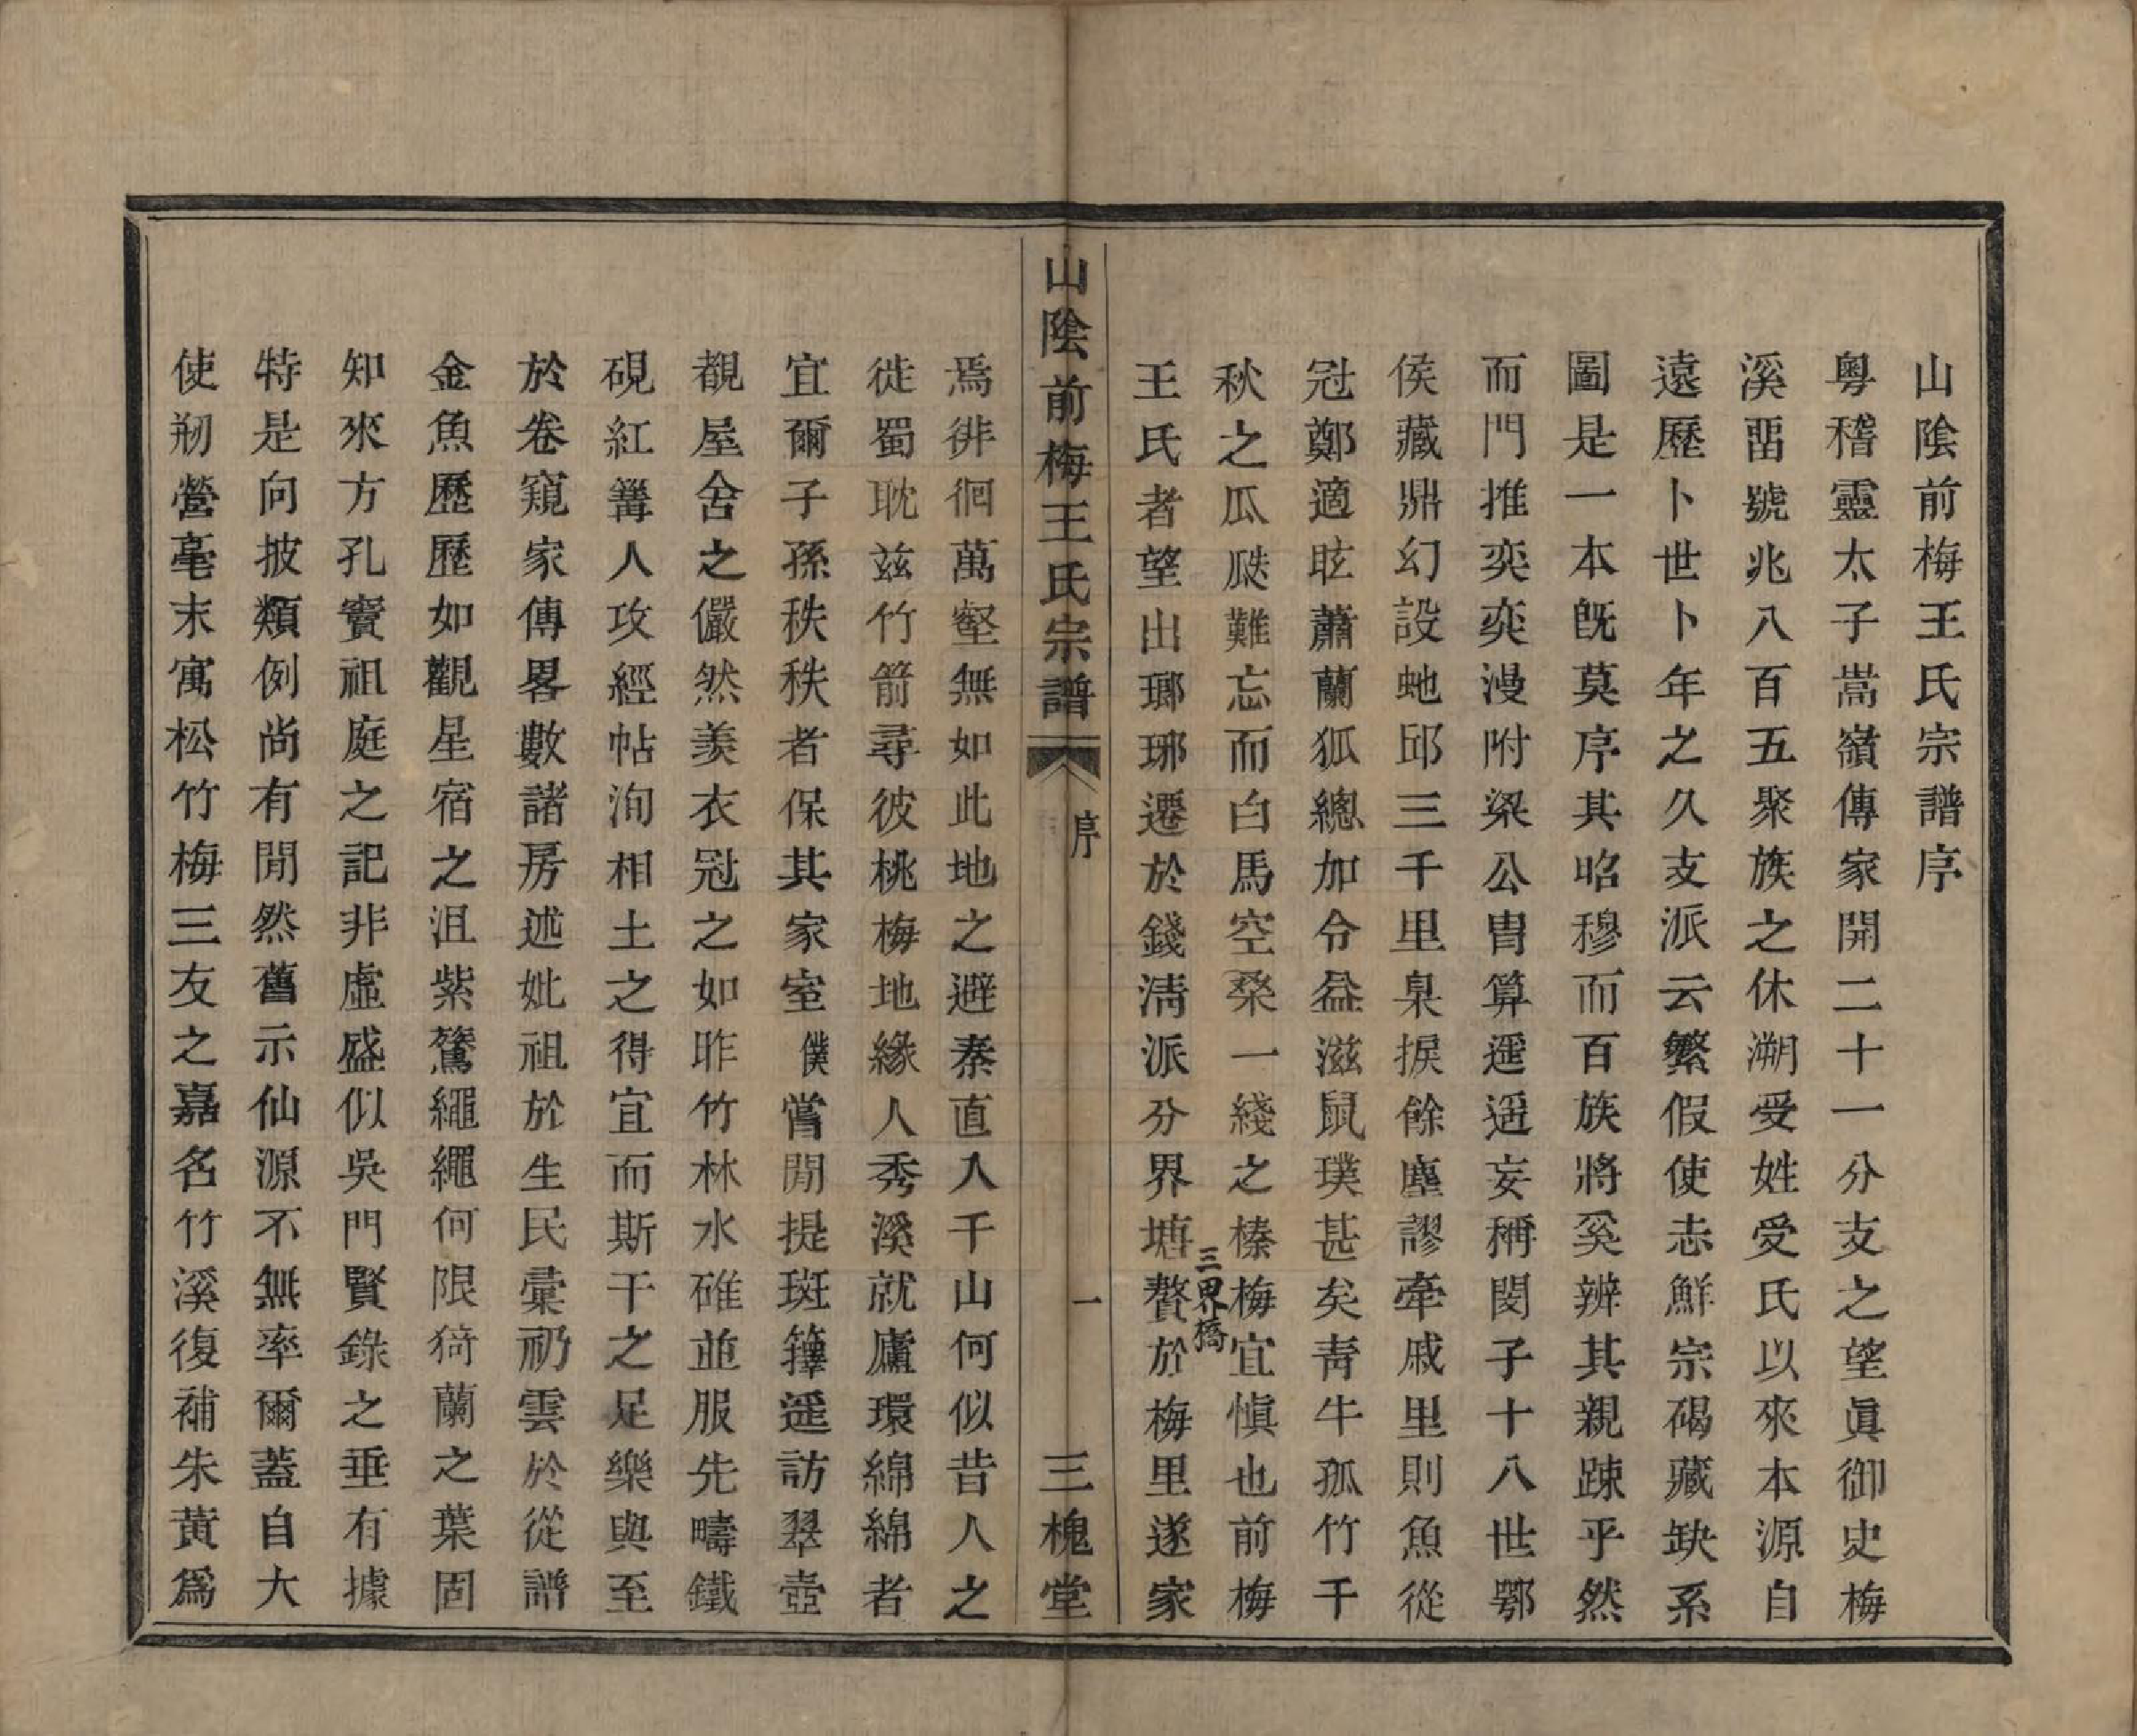 山陰前梅王氏宗譜序
粵稽靈太子嵩嶺傳家開二十一分支之望眞御史梅
溪畱號兆八百五聚族之休溯受姓受氏以來本源自
遠歷卜世卜年之久支派云繁假使忐鮮宗碣藏缺系
圖是一本旣莫序其昭穆而百族將奚辨其親踈乎然
而門推奕奕漫附梁公冑算遥遥妄稱閔子十八世鄂
侯藏鼎幻設虵邱三千里臬捩餘塵謬牽戚里則魚從
冠鄭適眩蕭蘭狐總加令益滋鼠璞甚矣靑牛孤竹千
秋之瓜瓞難忘而白馬空桑一綫之榛梅宜愼也前梅
王氏者望出瑯琊遷於錢淸派分界塘贅於梅里遂家
三界橋
山陰前梅王氏宗譜 序 一 三槐堂
焉徘徊萬壑無如此地之避秦直入千山何似昔人之
徙蜀耽兹竹箭尋彼桃梅地緣人秀溪就廬環綿綿者
宜爾子孫秩秩者保其家室僕嘗閒提斑籜遥訪翠壺
覩屋舍之儼然羨衣冠之如昨竹林水碓並服先疇鐵
硯紅篝人攻經帖洵相土之得宜而斯干之足樂與至
於卷窺家傳畧數諸房述妣祖於生民彙礽雲於從譜
金魚歷歷如觀星宿之沮紫鷟繩繩何限猗蘭之葉固
知來方孔竇祖庭之記非虛盛似吳門賢錄之垂有據
特是向披類例尚有閒然舊示仙源不無率爾蓋自大
使剏營毫末寓松竹梅三友之嘉名竹溪復補朱黃爲